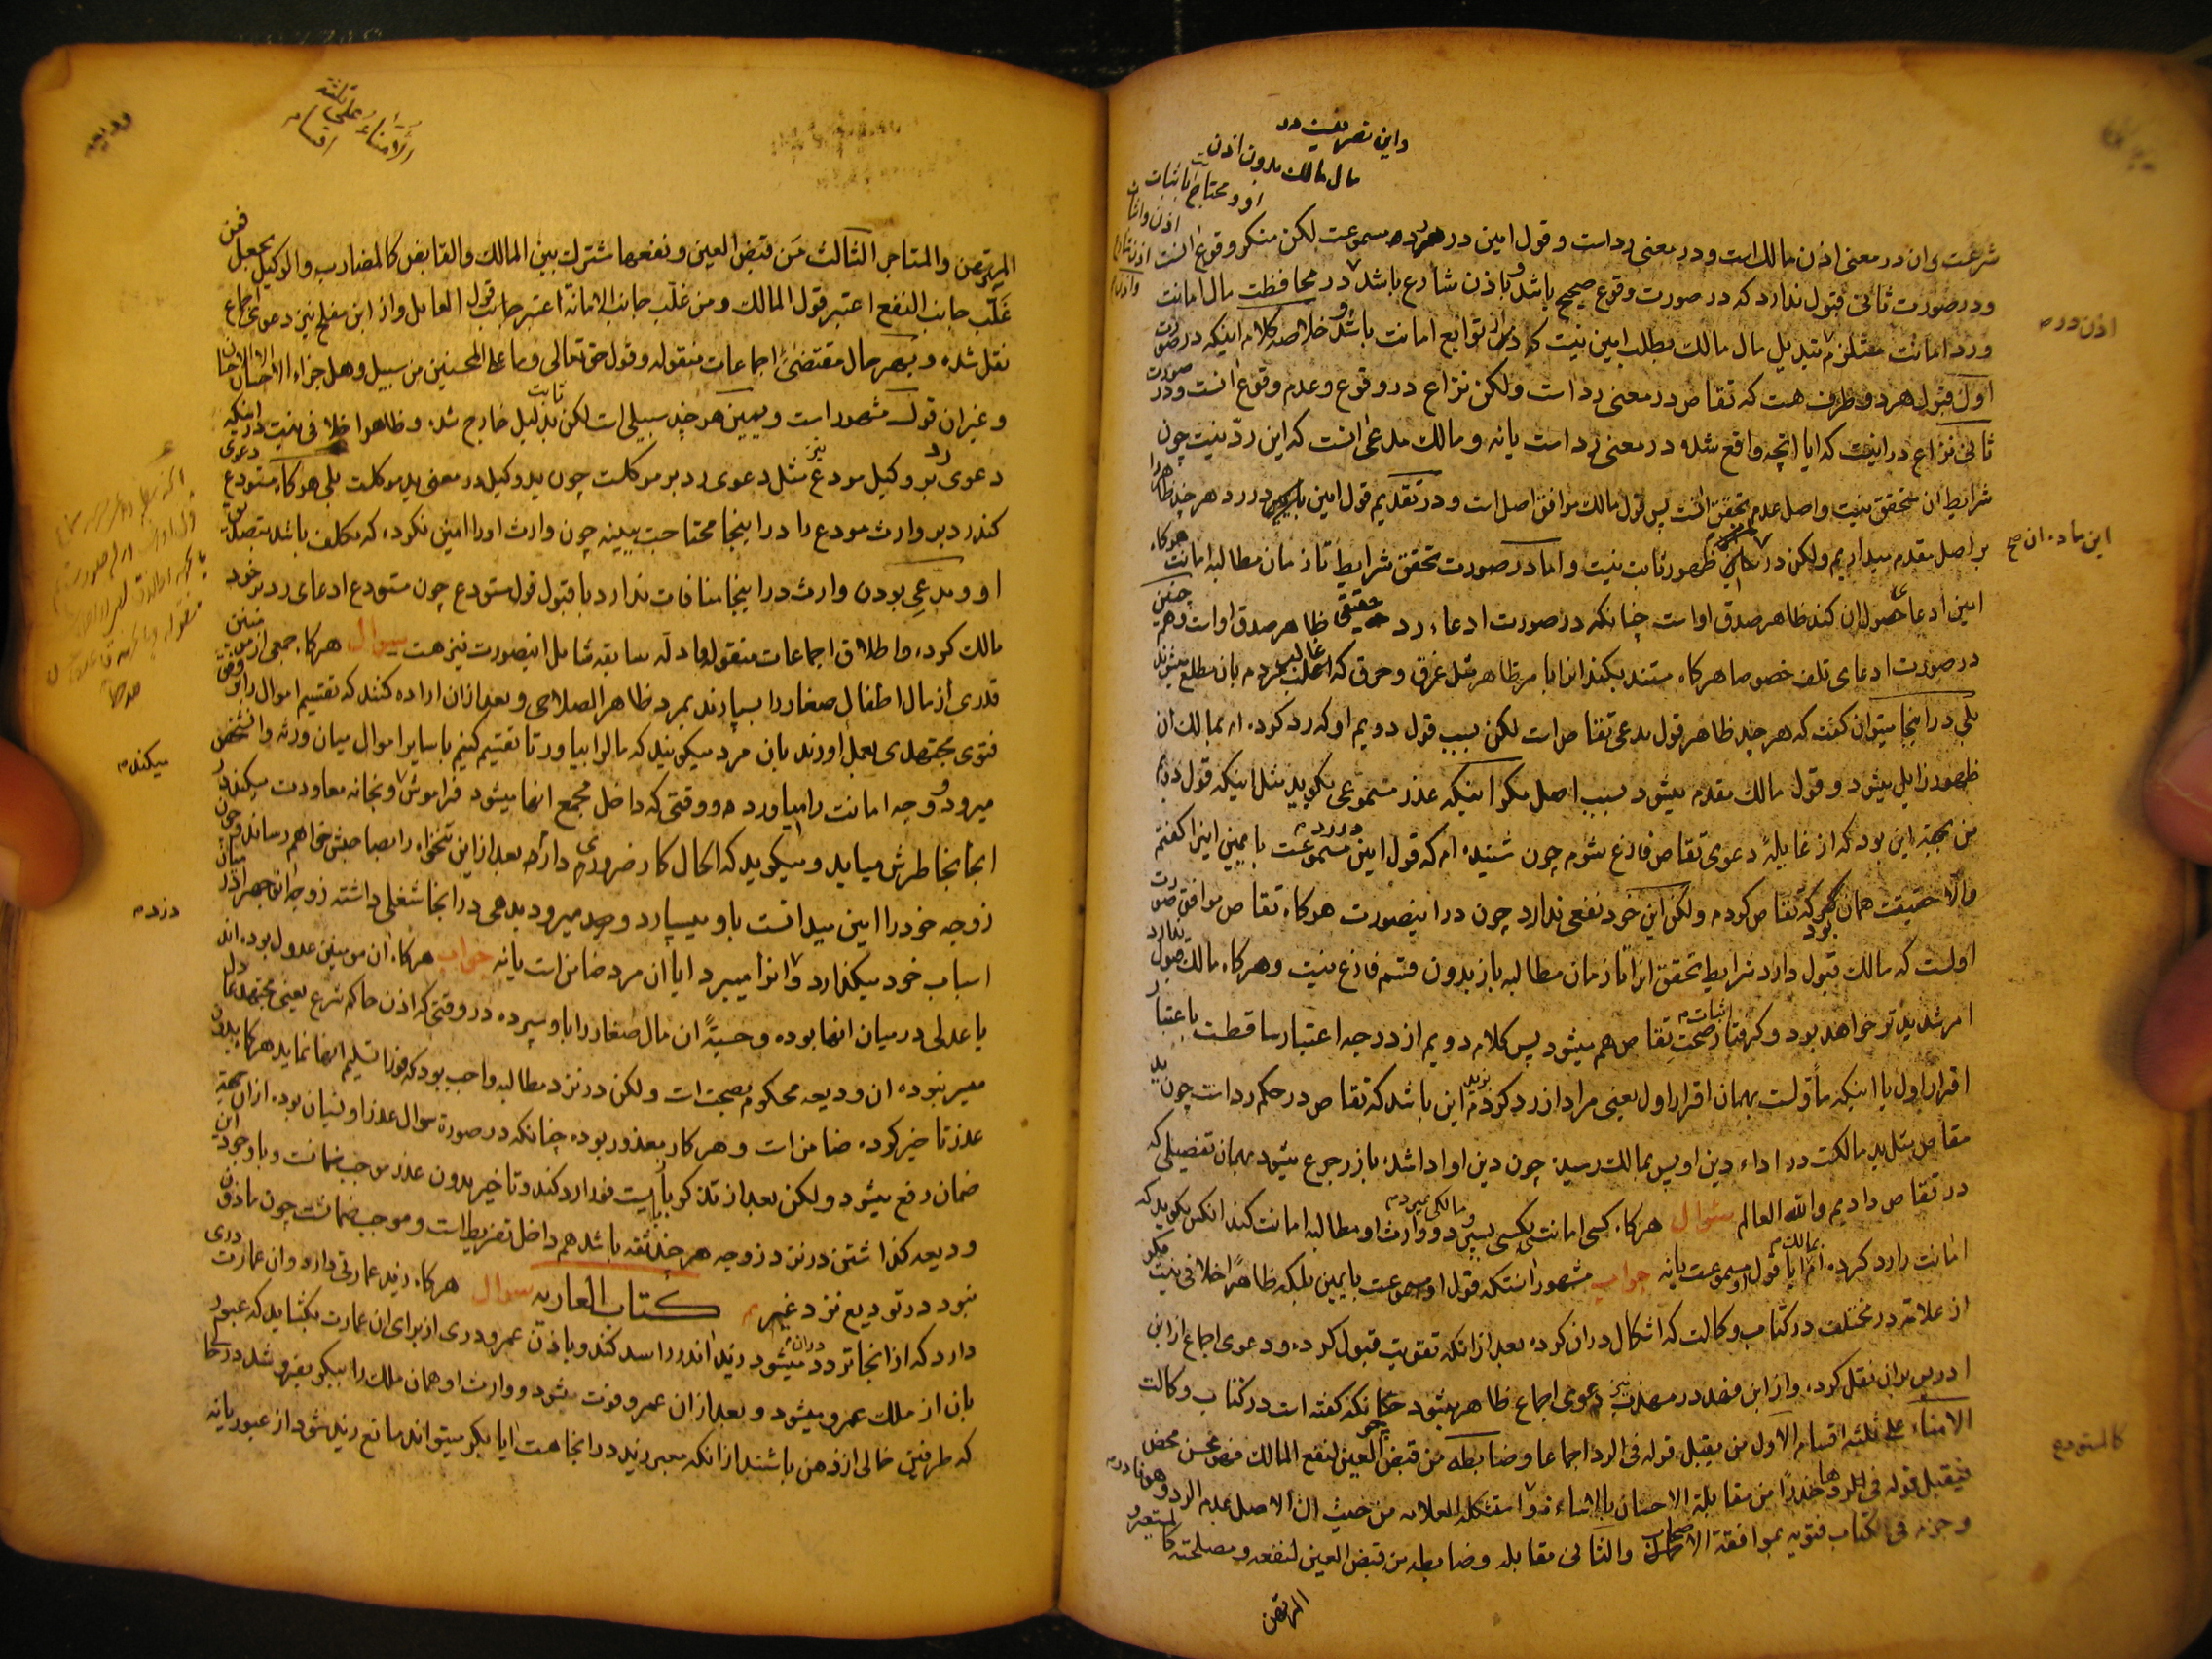 واین تصرفیست در
مال مالک بدون اذن
او و محتاج باثبات
شرعست وان در معنی اذن مالک است و در معنی رد است و قول امین در رد مسموعست لکن منکر وقوع انست
و در صورت ثانی قبول ندارد که در صورت وقوع صحیح باشد و باذن شارع باشد در محافظت مال امانت
ورد امانت مستلزم تبدیل مال مالک بطلب امین نیست که از توابع امانت باشد و خلاصه کلام اینکه در صورت
اول قبول هر دو طرف هست که تقاص در معنی رد است ولکن نزاع در وقوع و عدم وقوع انست و در صورت
ثانی نزاع در اینست که ایا انچه واقع شده در معنی رد است یا نه و مالک مدعی انست که این رد نیست چون
شرایط ان متحقق نیست و اصل عدم تحقق انست پس قول مالک موافق اصل است و در تقدیم قول امین در رد هر چند ظاهر را
بر اصل مقدم میداریم ولکن در ظهور ثابت نیست و اما در صورت تحقق شرایط تا زمان مطالبه امانت هرکاه
امین ادعا حصول ان کند ظاهر صدق او است چنانکه در صورت ادعاء رد حقیقی ظاهر صدق او است و هم چنین
در صورت ادعای تلف خصوصا هرکاه مستند بکند انرا بامر ظاهر مثل غرق و حرق که غالب مردم بان مطلع میشوند
بلی در اینجا میتوان کفت که هر چند ظاهر قول مدعی تقاص است لکن بسبب قول دویم او که رد کرده ام بمالک ان
ظهور زایل میشود و قول مالک مقدم میشود بسبب اصل مکر اینکه عذر مسموعی بکوید مثل اینکه قول دویم
من بجهة این بود که از غایله دعوی تقاص فارغ شوم چون شنیده ام که قول امین در رد مسموعست با یمین اینرا کفتم
والا حقیقت همان بود که تقاص کردم ولکن این خود نفعی ندارد چون در اینصورت هرکاه تقاص موافق صورت
اولست که مالک قبول دارد شرایط تحقق انرا تا زمان مطالبه باز بدون قسم فارغ نیست و هرکاه مالک قبول ندارد
امر شدیدتر خواهد بود و کرفتار اثبات صحت تقاص هم میشود پس کلام دویم از درجه اعتبار ساقطست باعتبار
اقرار اول یا اینکه ماولست بهمان اقرار اول یعنی مراد از رد کردم این باشد که تقاص در حکم رد است چون ید
مقاص مثل ید مالکست در اداء دین او پس بمالک رسیده چون دین او ادا شده باز رجوع میشود بهمان تفصیلی که
در تقاص دادیم والله العالم سوال هرکاه کسی امانت بکسی بسپرد و مالک بمیرد و وارث او مطالبه امانت کند انکس بکوید که
امانت را رد کرده ام بمالک ایا قول او مسموعست یا نه جواب مشهور انستکه قول او مسموعست با یمین بلکه ظاهرا خلافی نیست مکر
از علامه در مختلف در کتاب وکالت که اشکال در ان کرده بعد از انکه تقویت قبول کرده و دعوی اجماع از ابن
ادریس بر ان نقل کرده و از ابن فهد در مهذب نیز دعوی اجماع ظاهر میشود چنانکه کفته است در کتاب وکالت
الامناء علی ثلثه اقسام الاول من یقبل قوله فی الرد اجماعا وضابطه من قبض العین لنفع المالک فهو محسن محض
فیقبل قوله فی الرد حذرا من مقابلة الاحسان بالاساءة و استشکله العلامه من حیث ان الاصل عدم الرد و هو نادر
وجزم فی الکتاب فتویه بموافقة الاصحاب والثانی مقابله وضابطه من قبض العین لنفعه و مصلحته کالمستعیر و
المرتهن
اذن در
این ماده ان صح
کالمستودع
ودیعه
الامناء علی ثلثة
اقسام
المرتهن والمستاجر الثالث من قبض العین و نفعها مشترک بین المالک والقابض کالمضارب والوکیل بجعل فمن
غلب جانب النفع اعتبر قول المالک ومن غلب جانب الامانة اعتبر جانب قول العامل و از ابن مفلح نیز دعوی اجماع
نقل شده و بهر حال مقتضی اجماعات منقوله و قول حق تعالی وما علی المحسنین من سبیل وهل جزاء الاحسان الا الاحسان
و غیر ان قول مشهور است و یمین هر چند سبیلی است لکن بدلیل ثابت خارج شده و ظاهرا خلافی نیست در اینکه
دعوی رد بر وکیل مودع نیز مثل دعوی رد بر موکلست چون ید وکیل در معنی ید موکلست بلی هرکاه مستودع دعوی
کند رد بر وارث مودع را در اینجا محتاجست ببینه چون وارث اورا امین نکرده که مکلف باشد بتصدیق
او و مدعی بودن وارث در اینجا منافات ندارد با قبول قول مستودع چون مستودع ادعای رد بر خود
مالک کرده و اطلاق اجماعات منقوله و ادله سابقه شامل اینصورت نیز هست سوال هرکاه جمعی از مومنین
قدری از مال اطفال صغار را بسپارند بمرد ظاهر الصلاحی و بعد از ان اراده کنند که تقسیم اموال را بر وفق
فتوی مجتهدی بعمل اورند بان مرد میکویند که مال را بیاور تا تقسیم کنیم با سایر اموال میان ورثه و انشخص
میرود و وجه امانت را میاورد و وقتی که داخل مجمع انها میشود فراموش و بخانه معاودت میکند و در
انجا بخاطرش میاید و میکوید که الحال کار ضروری دارم بعد از این تنخواه را بصاحبش خواهم رساند و چون
زوجه خود را امین میدانست باو میسپارد و خود میرود بدهی در انجا شغلی داشته زوجه انوجه را در میان
اسباب خود میکذارد و انرا میبرد ایا ان مرد ضامن است یا نه جواب هرکاه ان مومنین عدول بوده اند
یا عدلی در میان انها بوده و حسبة ان مال صغار را باو سپرده در وقتی که اذن حاکم شرع یعنی مجتهد عادل
میسر نبوده ان ودیعه محکوم بصحت است ولکن در نزد مطالبه واجب بود که فورا تسلیم انها نماید هرکاه بدون
عذر تاخیر کرده ضامن است و هرکاه معذور بوده چنانکه در صورة سوال عذر او نسیان بوده از ان جهة
ضمان رفع میشود ولکن بعد از تذکر بایست فورا رد کند و تاخیر بدون عذر موجب ضمانست و با وجود این
ودیعه کذاشتن در نزد زوجه هر چند ثقه باشد هم داخل تفریط است و موجب ضمانست چون ماذون
نبود در تودیع نزد غیر کتاب العاریه سوال هرکاه زید عمارتی دارد و ان عمارت دری
دارد که از انجا تردد میشود زید اندر را سد کند و باذن عمرو دری از برای ان عمارت بکشاید که عبور
بان از ملک عمرو میشود و بعد از ان عمرو فوت میشود و وارث او همان ملک را ببکر بفروشد در حالی
که طرفین خالی از ذهن باشند از انکه معبر زید در انجا هست ایا بکر میتواند مانع زید شود از عبور یا نه
میکند